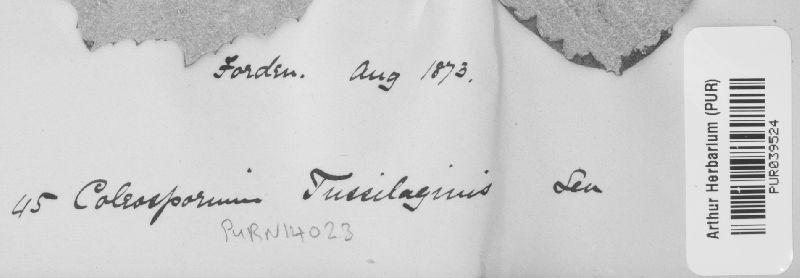 Forden. Aug 1873.
45 Coleosporium Tussilaginis Lev
PURN14023
Arthur Herbarium (PUR)
PUR039524